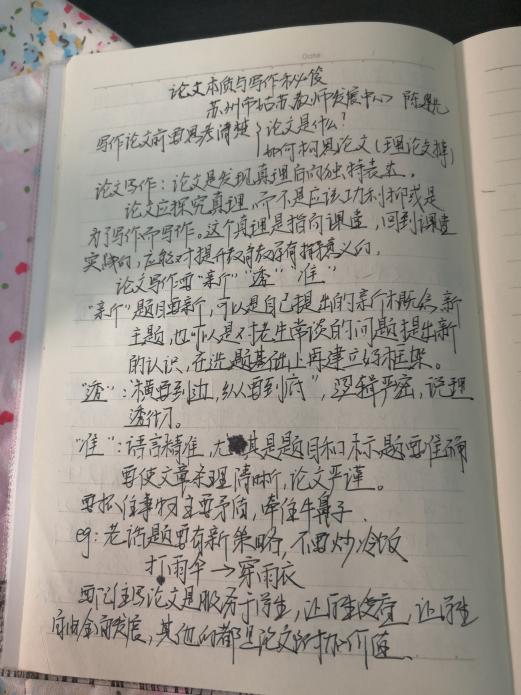 Date
论文本质与写作秘俊
苏州市姑苏教师发展中心 陈
写作论文前要思考清楚 论文是什么?
如何构思论文(理论支撑)
论文写作:论文是发现真理后的独特表达。
论文应探究真理,而不是应该功利抑或是
为了写作而写作。这个真理是指向课堂,回到课堂
实践的,应该对提升教育教学有积极意义的。
论文写作要"新""透""准"
"新"题目要新,可以是自己提出的新概念、新
主题,也可以是对老生常谈的问题提出新
的认识,在选题基础上再建立好框架。
"透":横要到边,纵要到底",逻辑严密,说理
透彻。
"准":语言精准,尤其是题目和标题要准确
要使文章条理清晰,论文严谨。
要抓住事物主要矛盾,牵住牛鼻子.
eg:老话题要有新策略,不要炒冷饭
打雨伞→穿雨衣
要记住写论文是服务于学生,让学生受益,让学生
发展,其他的都是论文的附加价值.